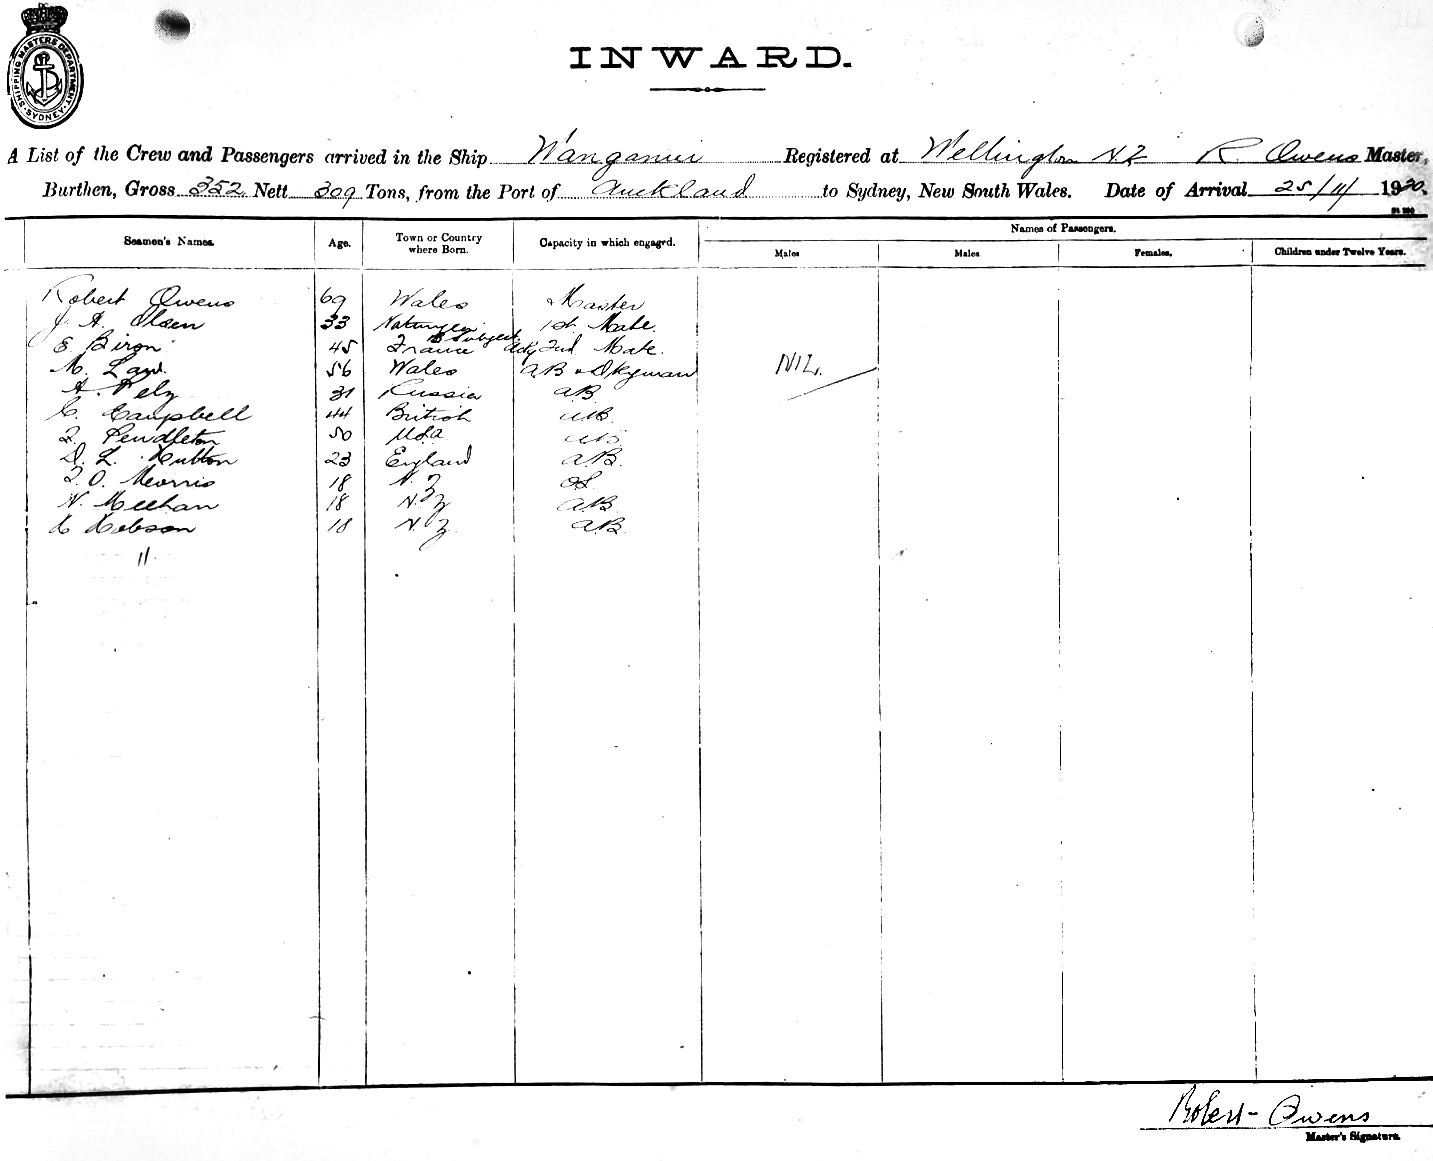 SHIPPING MASTERS DEPARTMENT SYDNEY
INWARD.
A List of the Crew and Passengers arrived in the Ship Wanganui Registered at Wellington N.Z R. Owens Master,
Burthen, Gross 352 Nett 309 Tons, from the Port of Auckland to Sydney, New South Wales. Date of Arrival 25/11/ 1920.
Names of Passengers.
Seamen's Names. Age. Town or Country where Born. Capacity in which engaged. Males Males Females. Children under Twelve Years.
Robert Owens 69 Wales Master
J. A. Olsen 33 B Subject 1st. Mate.
E Biron 45 France 2nd Mate.
M. Law. 56 Wales AB & Dkyman
A. Pelz 31 Russia AB.
C. Campbell 44 British AB.
Pendleton 50 USA AB
D. L. Hutton 23 England AB.
O. Morris 18 N.Z OS.
N. Meehan 18 N.Z AB.
H Hobson 18 N.Z AB.
11
NIL.
Robert Owens
Master's Signature.